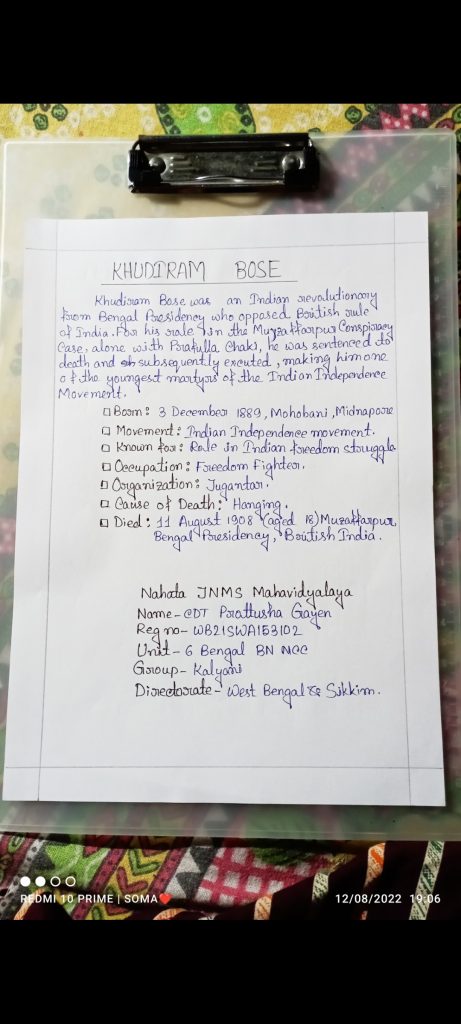 KHUDIRAM BOSE
Khudiram Bose was an Indian revolutionary
from Bengal Presidency who opposed British rule
of India. For his role in the Muzaffarpur Conspiracy
Case, alone with Prafulla Chaki, he was sentenced to
death and subsequently excuted, making him one
of the youngest martyrs of the Indian Independence
Movement.
□ Born: 3 December 1889, Mohobani, Midnapore
□ Movement: Indian Independence movement.
□ Known for: Role in Indian freedom struggle
□ Occupation: Freedom Fighter.
□ Organization: Jugantar.
□ Cause of Death: Hanging.
□ Died: 11 August 1908 (aged 18) Muzaffarpur,
Bengal Presidency, British India.
Nahata JNMS Mahavidyalaya
Name - CDT Prattusha Gayen
Reg no - WB21SWA153102
Unit - 6 Bengal BN NCC
Group - Kalyani
Directorate - West Bengal & Sikkim.
REDMI 10 PRIME | SOMA❤
12/08/2022 19:06